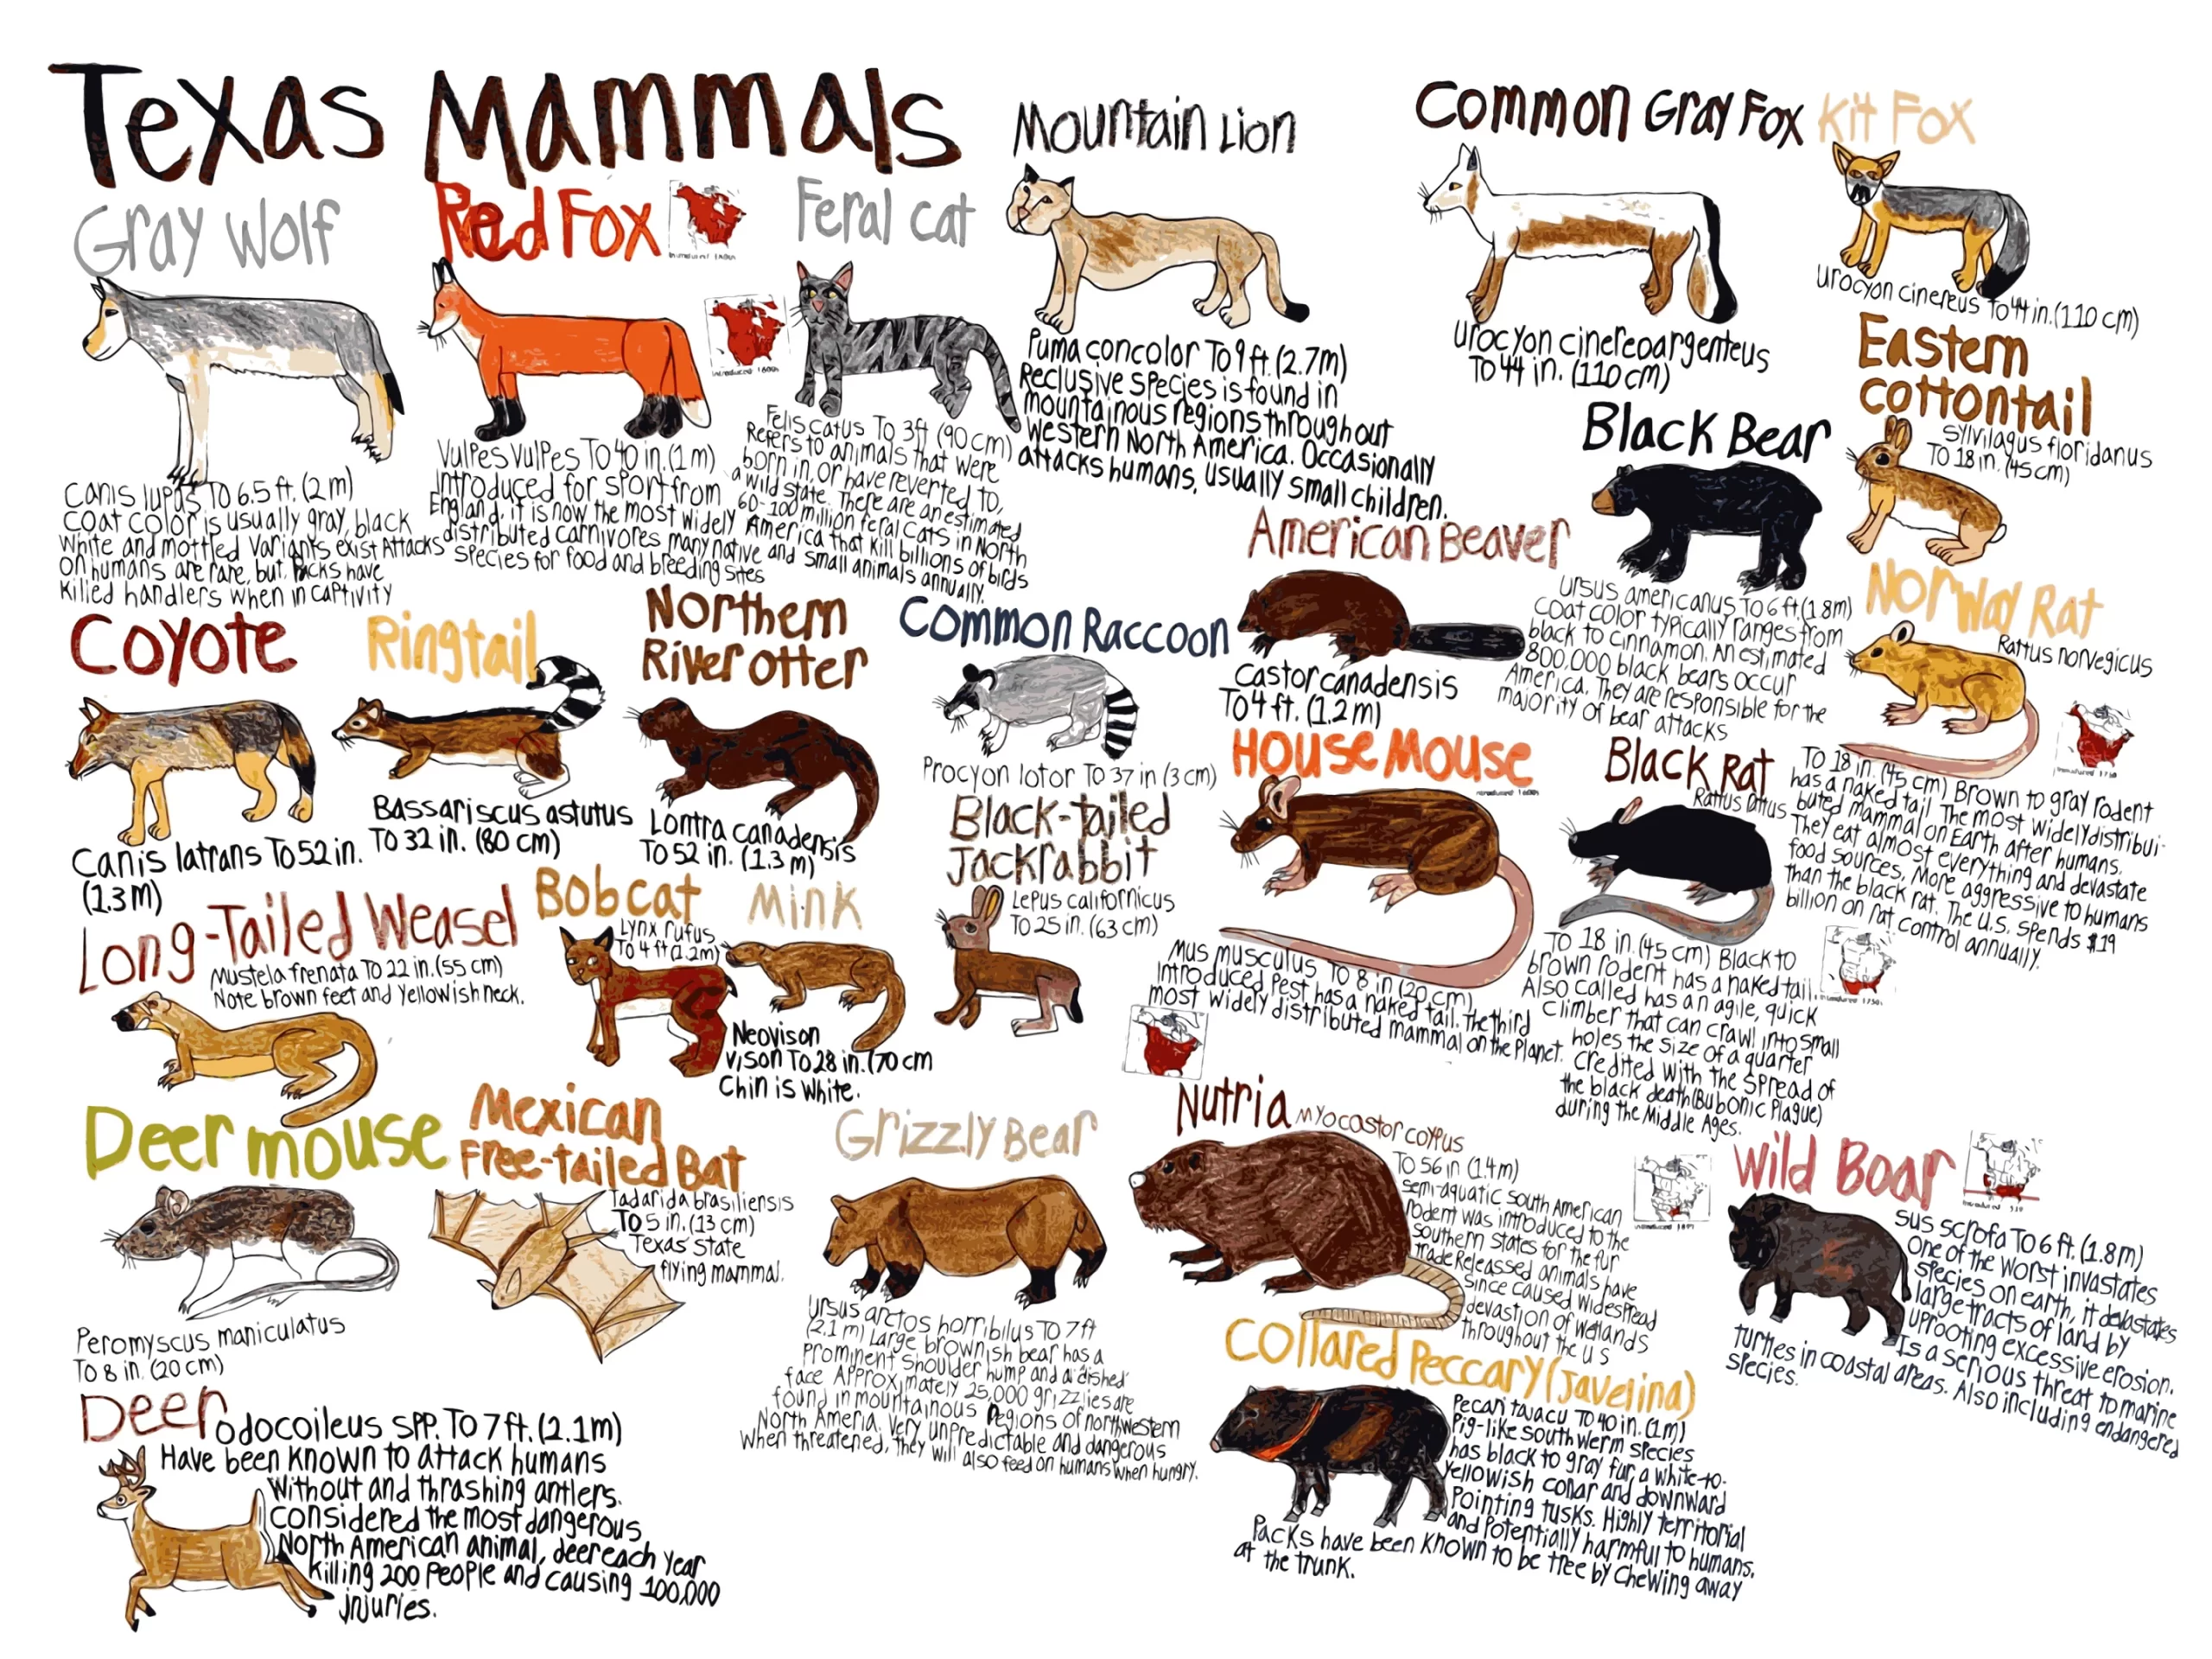 Texas Mammals
Gray Wolf
Canis lupus To 6.5 ft. (2 m)
Coat color is usually gray, black
White and mottled Variants exist Attacks
on humans are rare, but, Packs have
Killed handlers when in captivity
Red Fox
Vulpes vulpes To 40 in. (1 m)
Introduced for sport from
England, it is now the most widely
distributed carnivores many native
species for food and breeding sites
Introduced 1600s
Feral cat
Felis catus To 3ft (90 cm)
Refers to animals that were
born in, or have reverted to,
a wild state. There are an estimated
60-100 million feral cats in North
America that kill billions of birds
and small animals annually.
Mountain Lion
Puma concolor To 9 ft. (2.7m)
Reclusive species is found in
mountainous regions throughout
Western North America. Occasionally
attacks humans, usually small children.
Common Gray Fox
Urocyon cinereoargenteus
To 44 in. (110 cm)
Kit Fox
Urocyon cinereus To 44 in. (110 cm)
Eastern
cottontail
Sylvilagus floridanus
To 18 in. (45 cm)
Black Bear
Ursus americanus To 6 ft (1.8m)
Coat color typically ranges from
black to cinnamon. An estimated
800,000 black bears occur
America. They are responsible for the
majority of bear attacks
American Beaver
Castor canadensis
To 4 ft. (1.2 m)
Norway Rat
Rattus norvegicus
To 18 in. (45 cm) Brown to gray rodent
has a naked tail. The most widely distribui-
buted mammal on Earth after humans.
They eat almost everything and devastate
food sources, More aggressive to humans
than the black rat. The U.S. spends $19
billion on rat control annually.
Coyote
Canis latrans To 52 in.
(1.3 M)
Ringtail
Bassariscus astutus
To 32 in. (80 cm)
Northern
River otter
Lontra canadensis
To 52 in. (1.3 m)
Common Raccoon
Procyon lotor To 37 in (3 cm)
Black-tailed
Jackrabbit
Lepus californicus
To 25 in. (63 cm)
House Mouse
Mus musculus To 8 in (20 cm)
Introduced Pest has a naked tail. The third
most widely distributed mammal on the Planet.
Black Rat
Rattus rattus
To 18 in. (45 cm) Black to
brown rodent has a naked tail.
Also called has an agile, quick
Climber that can crawl into small
holes the size of a quarter
Credited with the spread of
the black death (Bubonic Plague)
during the Middle Ages.
Long-Tailed Weasel
Mustela frenata To 22 in. (55 cm)
Note brown feet and yellowish neck.
Bobcat
Lynx rufus
To 4 ft (1.2m)
Mink
Neovison
vison To 28 in. (70 cm
Chin is white.
Deer mouse
Peromyscus maniculatus
To 8 in. (20 cm)
Mexican
Free-tailed Bat
Tadarida brasiliensis
To 5 in. (13 cm)
Texas State
flying mammal.
Grizzly Bear
Ursus arctos horribilus To 7 ft
(2.1 m) Large brownish bear has a
prominent shoulder hump and a dished
face Approximately 25,000 grizzlies are
found in mountainous Regions of northwestern
North Ameria. Very unpredictable and dangerous
When threatened, they will also feed on humans when hungry.
Nutria Myocastor coypus
To 56 in (1.4 m)
Semi-aquatic South American
rodent was introduced to the
southern states for the fur
trade Releassed animals have
since caused widespread
devastion of wetlands
throughout the U S
Wild Boar
Sus scrofa To 6 ft. (1.8m)
One of the worst invastates
species on earth, it devastates
large tracts of land by
uprooting excessive erosion.
Is a serious threat to marine
turtles in coastal areas. Also including endangered
species.
Collared Peccary (Javelina)
Pecari tajacu To 40 in. (1m)
Pig-like southwerm species
has black to gray fur, a white-to-
yellowish conar and downward
Pointing tusks. Highly territorial
and potentially harmful to humans.
Packs have been known to be tree by chewing away
at the trunk.
Deer
Odocoileus spp. To 7 ft. (2.1m)
Have been known to attack humans
Without and thrashing antlers.
Considered the most dangerous
North American animal, deer each year
killing 200 people and causing 100,000
injuries.